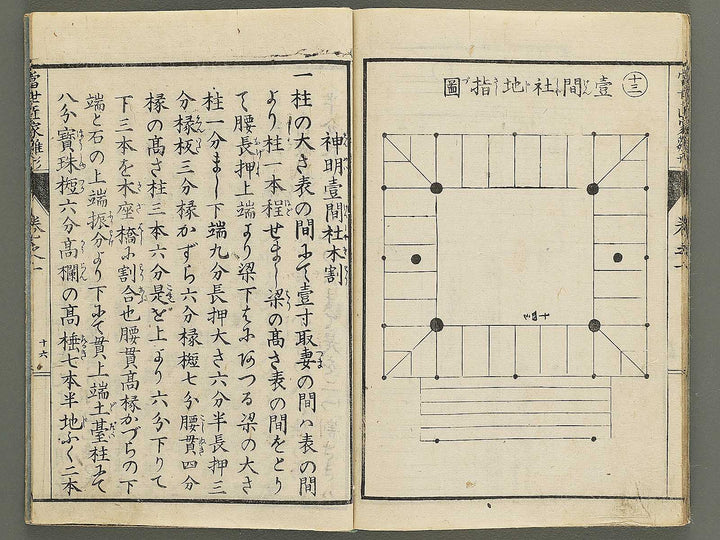 十三
壹間社地指圖
十四
神明壹間社木割
一柱の大さ表の間にて壹寸取妻の間ハ表の間
より柱一本程せまし梁の髙さ表の間をとり
て腰長押上端より梁下はに
つる梁の大さ
柱一分まし下端九分長押大さ六分半長押三
分椽板三分椽かずら六分椽短七分腰貫四分
椽の髙さ柱三本六分是を上より六分下りて
下三本を木座橋に割合也腰貫髙椽かづらの下
端と石の上端振分より下にて貫上端土臺柱にて
八分寳珠短六分髙欄の髙
七本半地ふく二本
十六